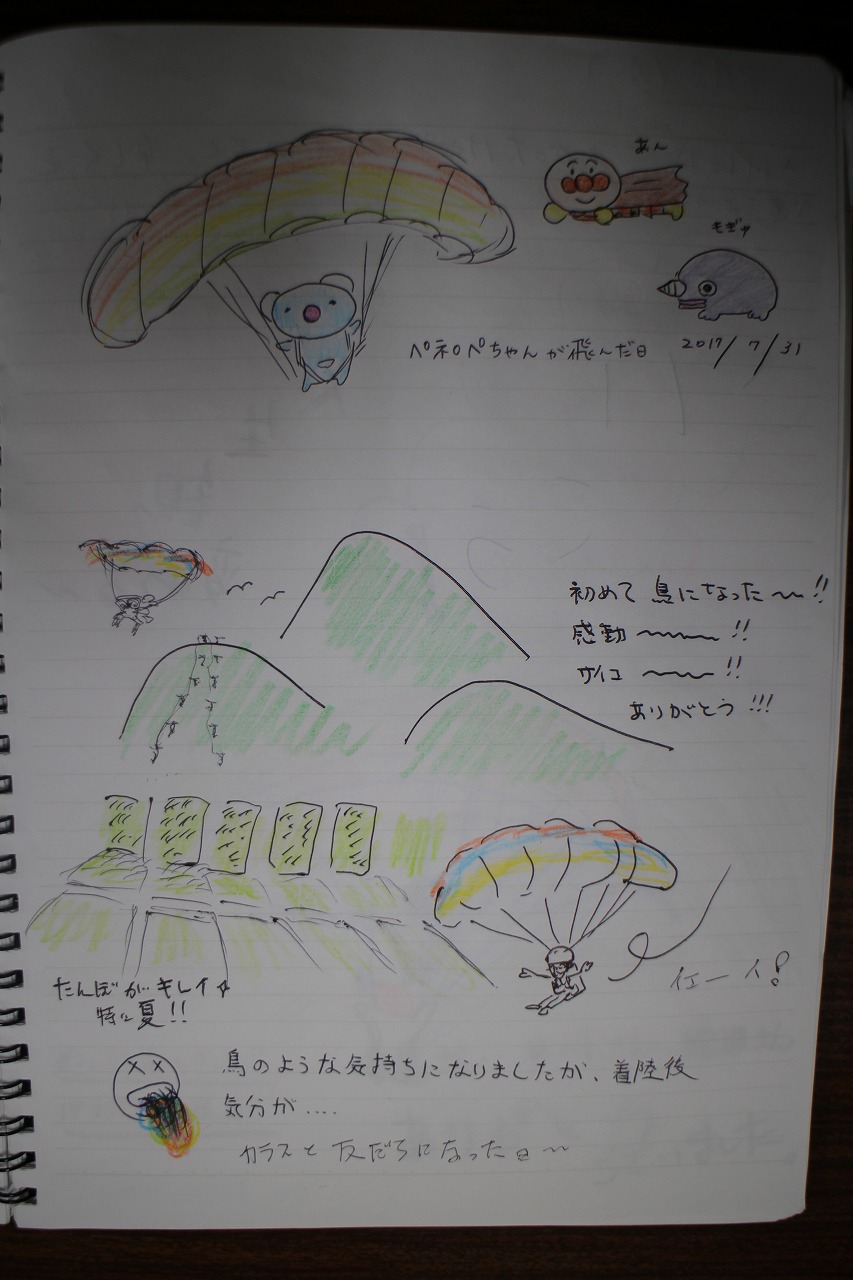 あん
もぎゅ
ペネロペちゃんが飛んだ日 2017/7/31
初めて 鳥になった〜!!
感動〜〜!!
サイコ〜〜!!
ありがとう!!!
たんぼがキレイ☆
特に夏!!
イェーイ!
鳥のような気持ちになりましたが、着陸後
気分が....
カラスと友だちになった日〜